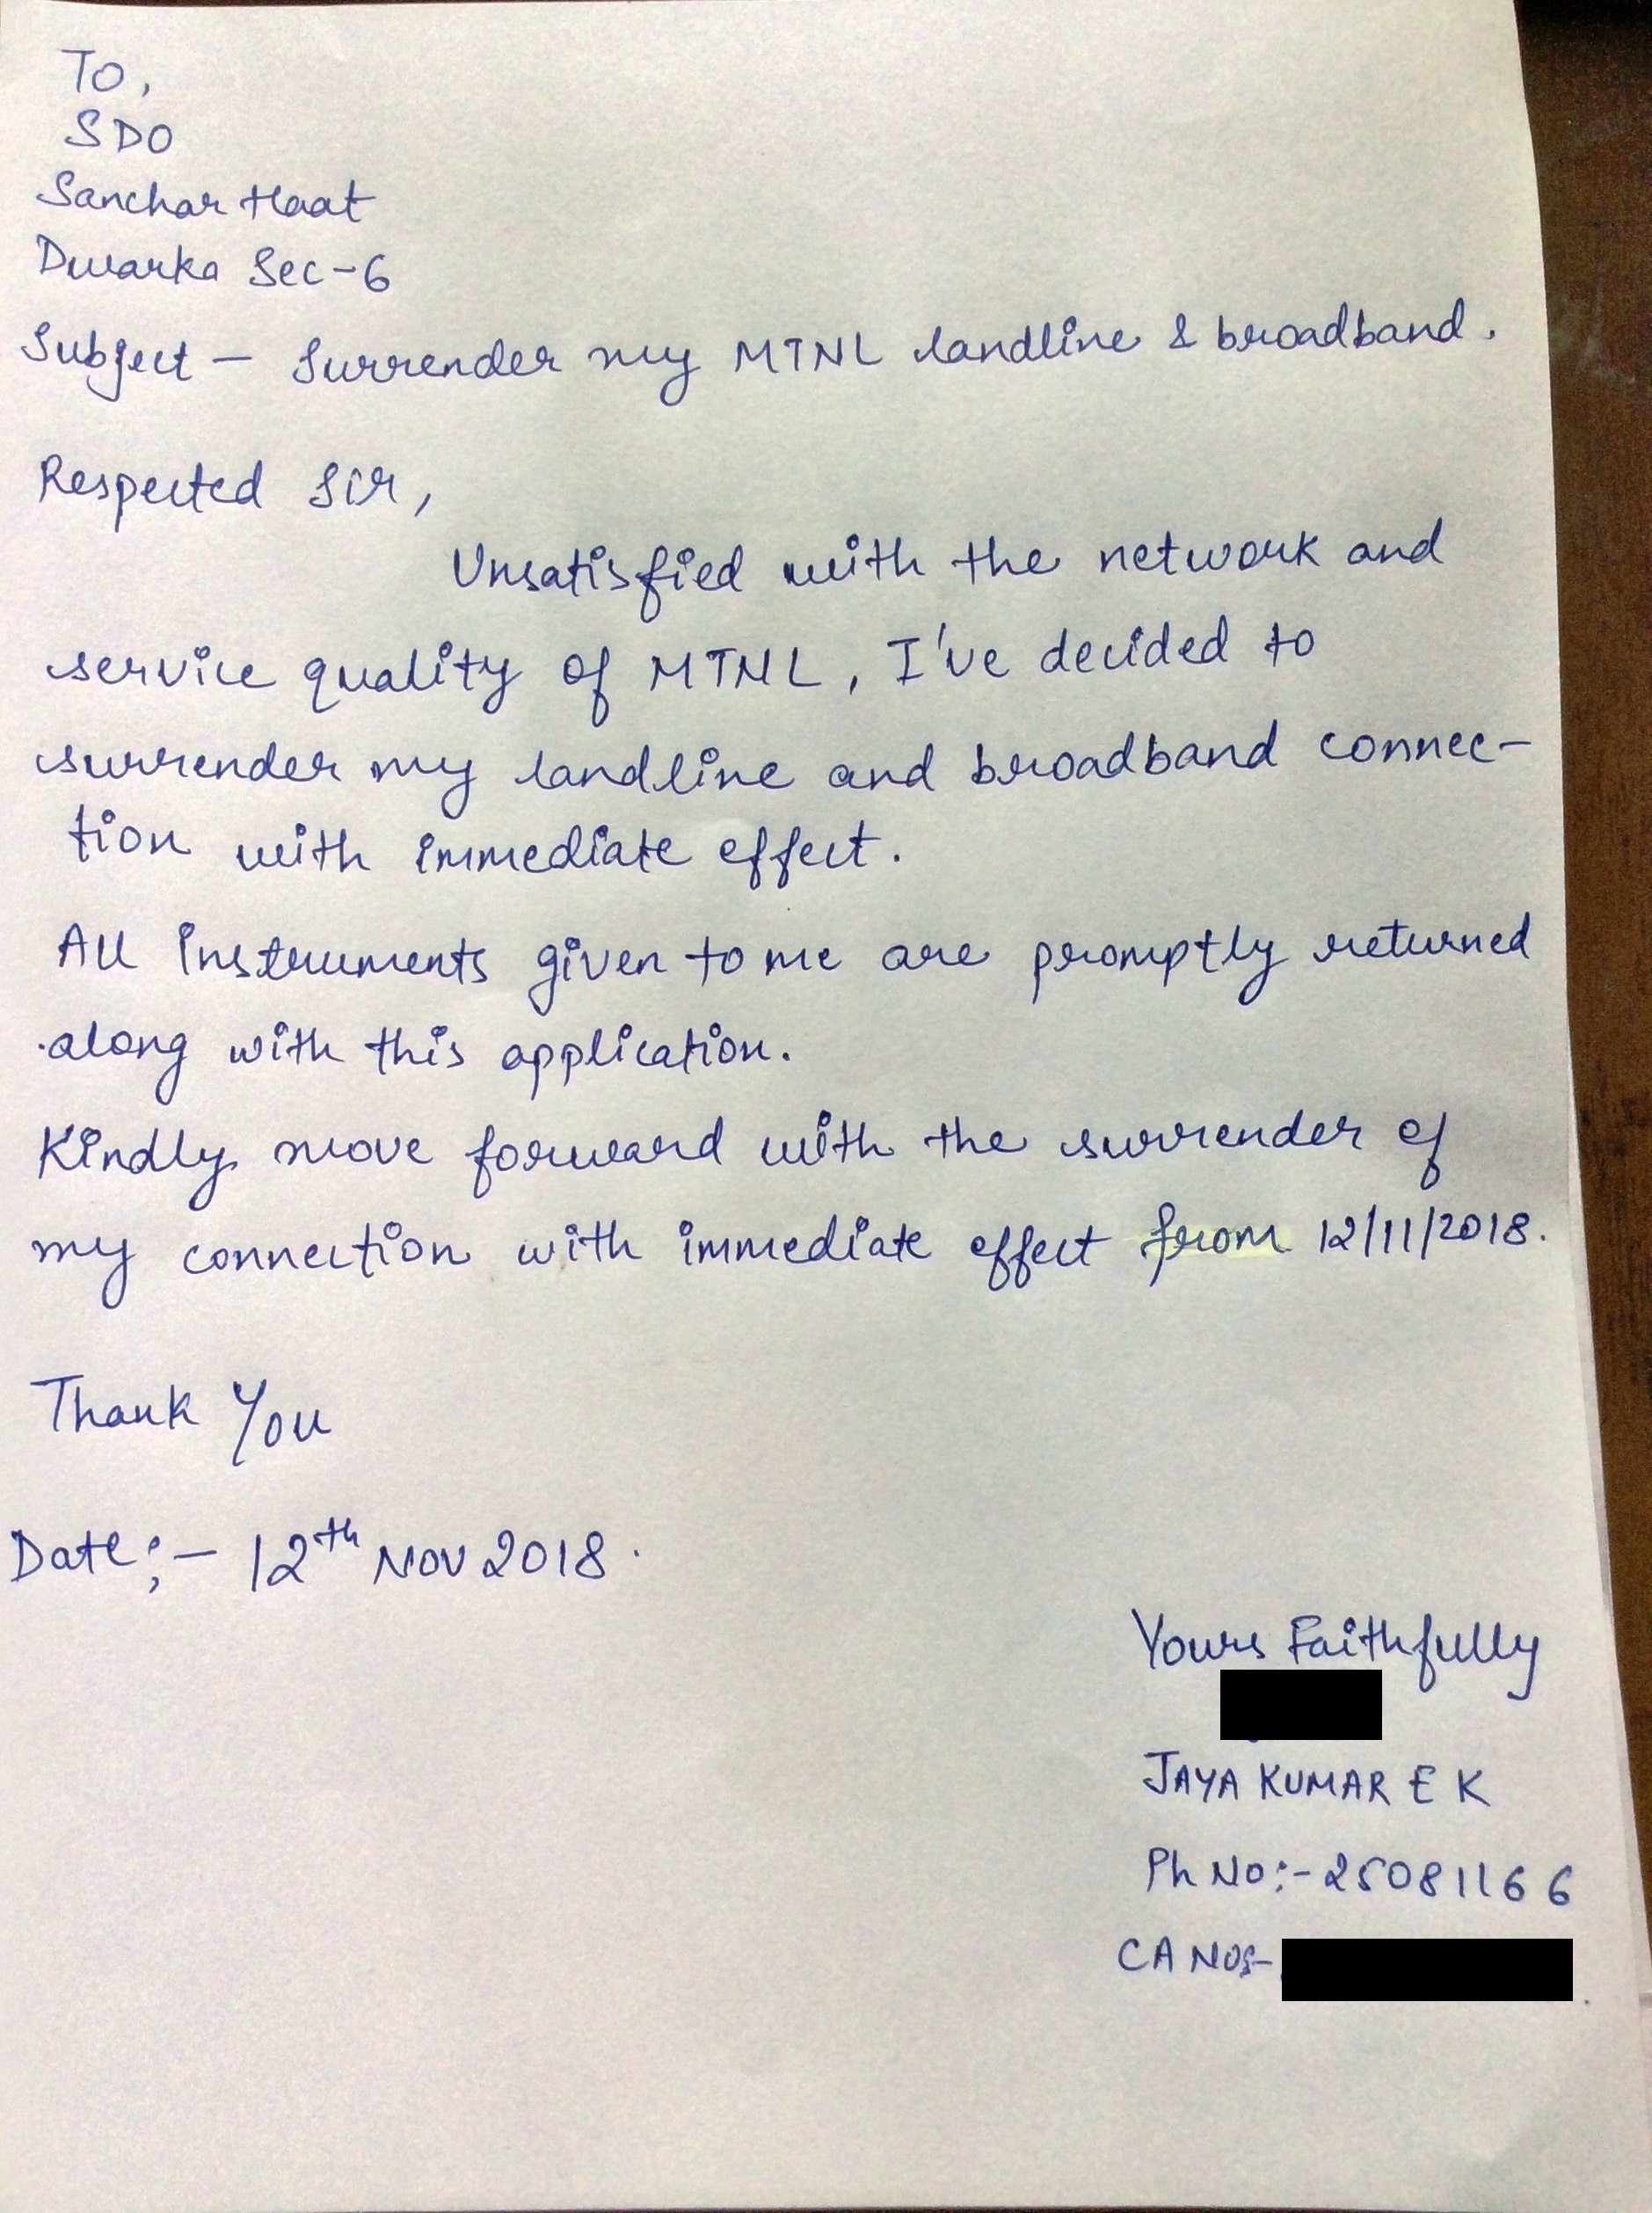 To,
SDO
Sanchar Haat
Dwarka Sec-6
Subject - Surrender my MTNL landline & broadband.
Respected Sir,
Unsatisfied with the network and
service quality of MTNL, I've decided to
surrender my landline and broadband connec-
tion with immediate effect.
All instruments given to me are promptly returned
along with this application.
Kindly move forward with the surrender of
my connection with immediate effect from 12/11/2018.
Thank You
Date:- 12th NOV 2018.
Yours Faithfully
JAYA KUMAR E K
Ph No:- 25081166
CA No:-